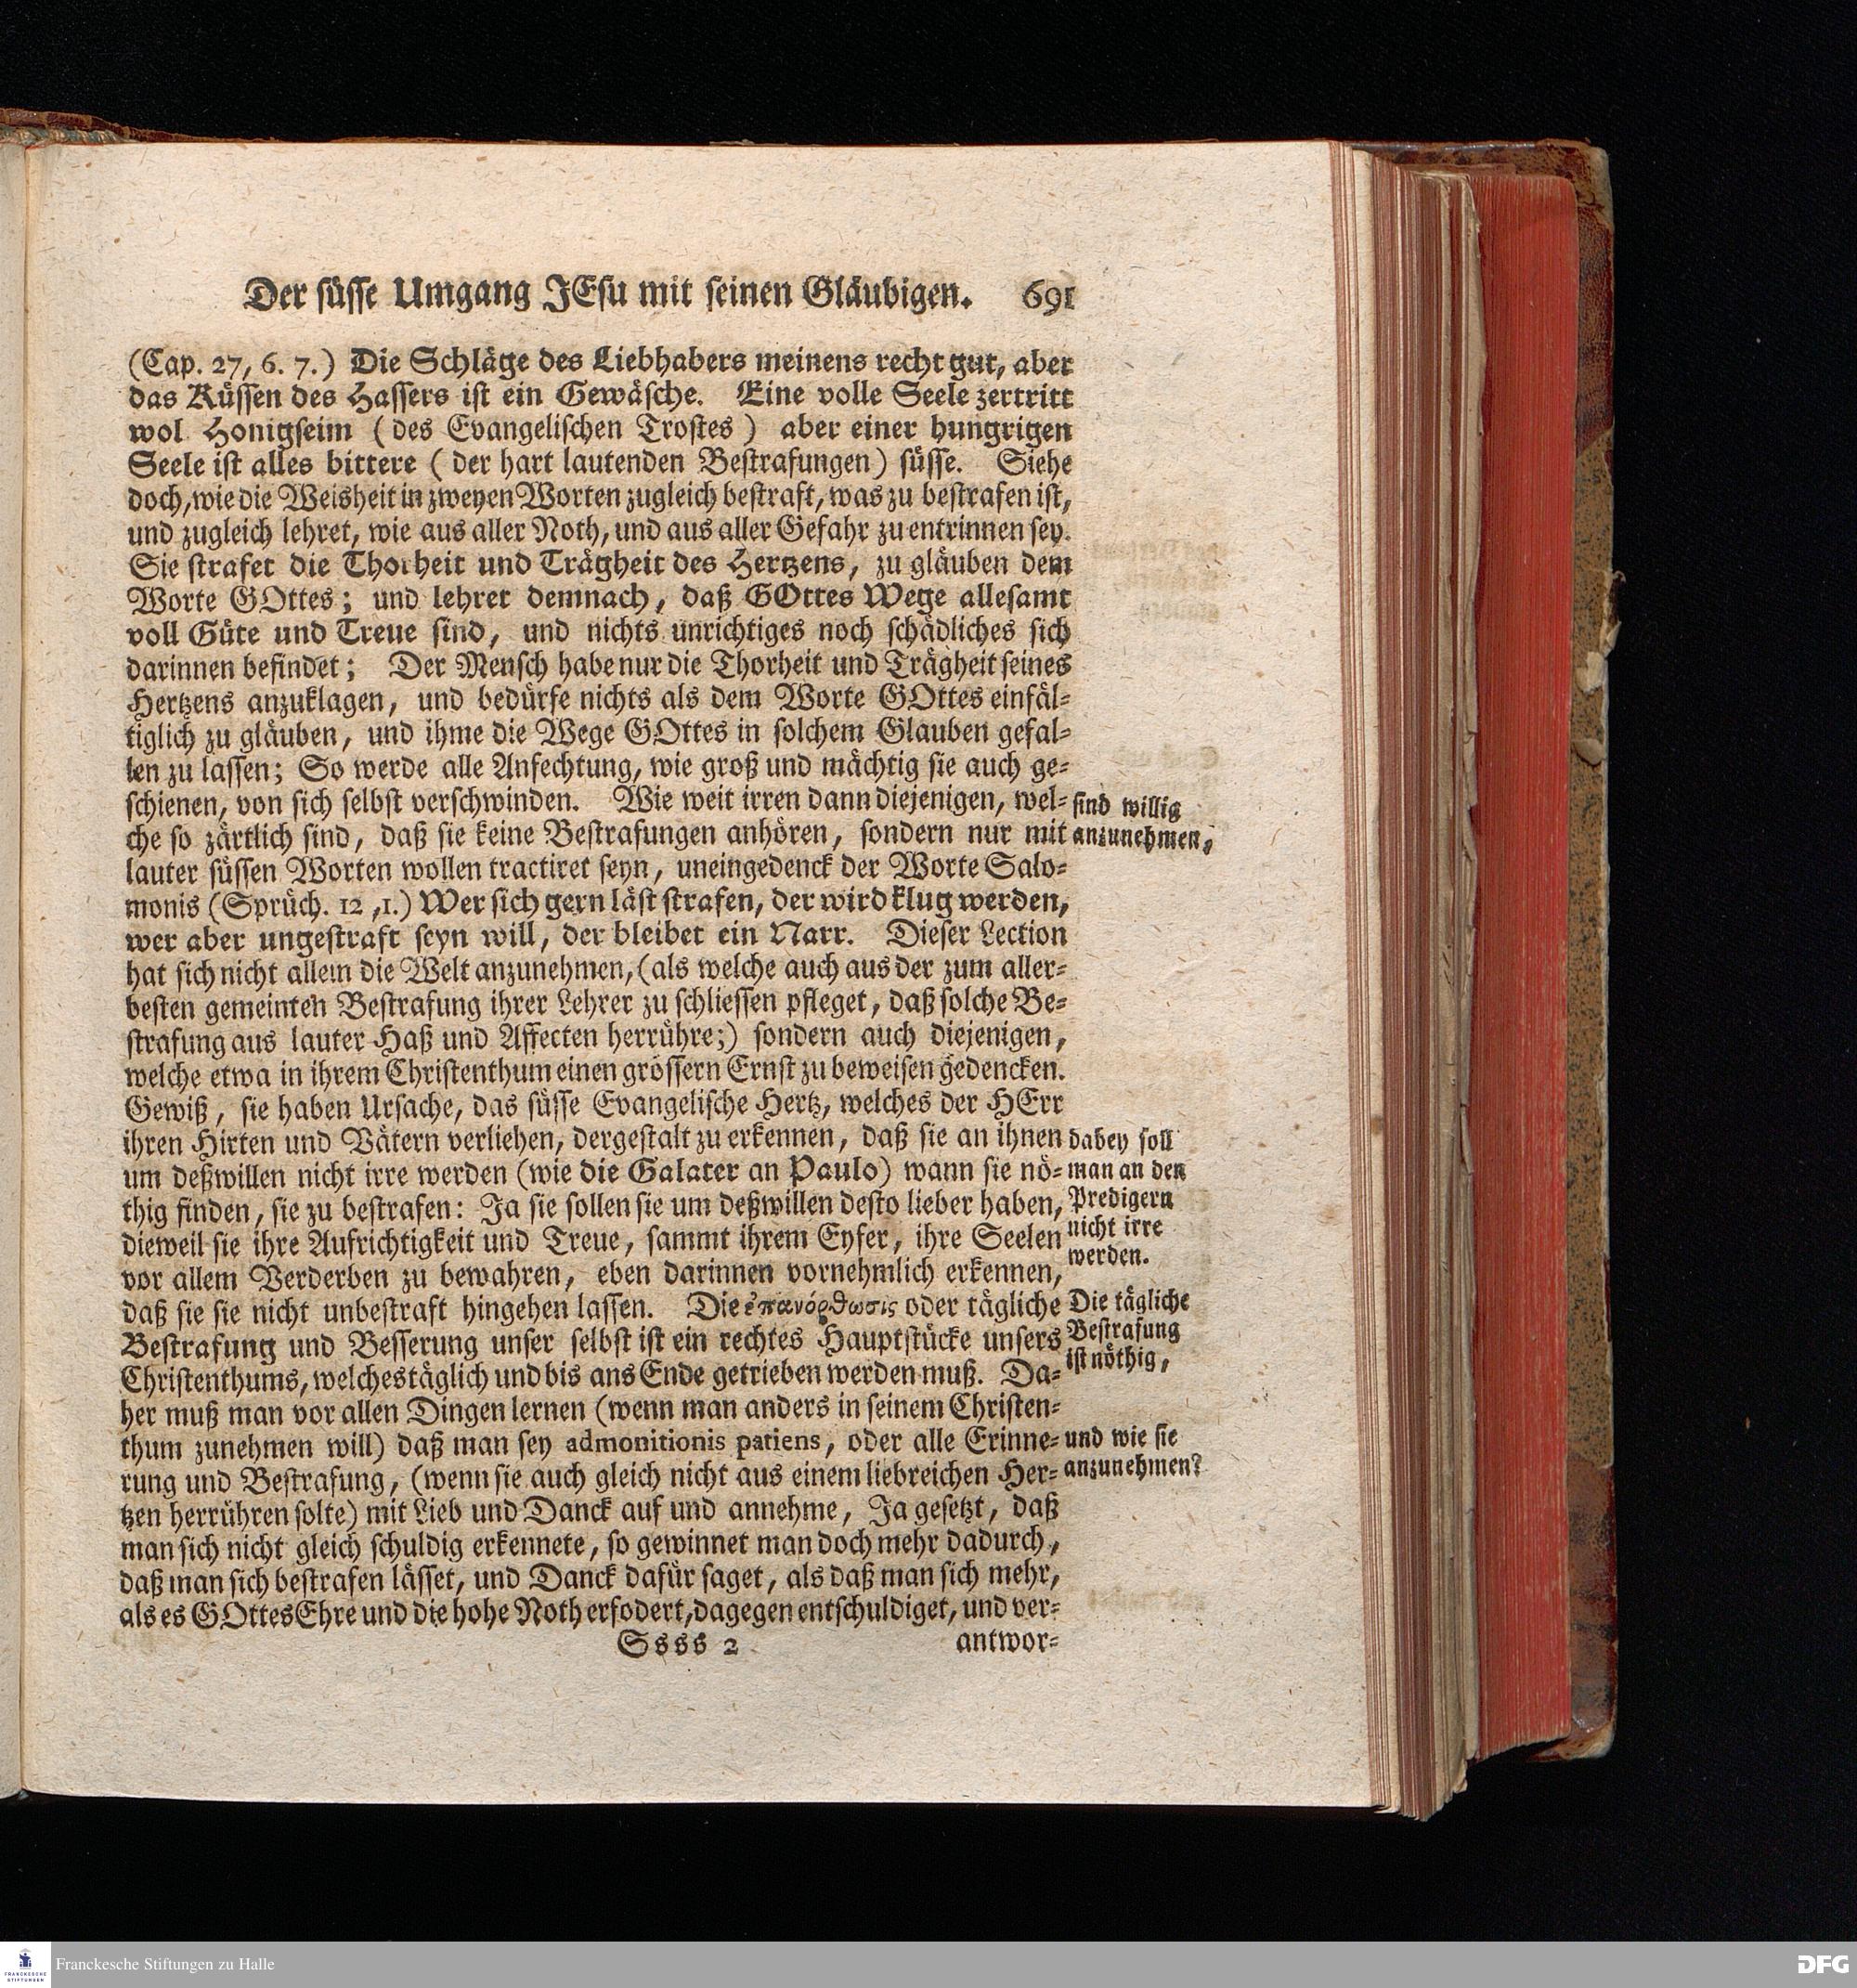 Der süsse Umgang JEsu mit seinen Gläubigen. 691
(Cap. 27, 6. 7.) Die Schläge des Liebhabers meinens recht gut, aber
das Küssen des Hassers ist ein Gewäsche. Eine volle Seele zertritt
wol Honigseim (des Evangelischen Trostes) aber einer hungrigen
Seele ist alles bittere (der hart lautenden Bestrafungen) süsse. Siehe
doch, wie die Weisheit in zweyen Worten zugleich bestraft, was zu bestrafen ist,
und zugleich lehret, wie aus aller Noth, und aus aller Gefahr zu entrinnen sey.
Sie strafet die Thorheit und Trägheit des Hertzens, zu gläuben dem
Worte GOttes; und lehret demnach, daß GOttes Wege allesamt
voll Güte und Treue sind, und nichts unrichtiges noch schädliches sich
darinnen befindet; Der Mensch habe nur die Thorheit und Trägheit seines
Hertzens anzuklagen, und bedürfe nichts als dem Worte GOttes einfäl-
tiglich zu gläuben, und ihme die Wege GOttes in solchem Glauben gefal-
len zu lassen; So werde alle Anfechtung, wie groß und mächtig sie auch ge-
schienen, von sich selbst verschwinden. Wie weit irren dann diejenigen, wel-
che so zärtlich sind, daß sie keine Bestrafungen anhören, sondern nur mit
lauter süssen Worten wollen tractiret seyn, uneingedenck der Worte Salo-
monis (Sprüch. 12, 1.) Wer sich gern läst strafen, der wird klug werden,
wer aber ungestraft seyn will, der bleibet ein Narr. Dieser Lection
hat sich nicht allein die Welt anzunehmen, (als welche auch aus der zum aller-
besten gemeinten Bestrafung ihrer Lehrer zu schliessen pfleget, daß solche Be-
strafung aus lauter Haß und Affecten herrühre;) sondern auch diejenigen,
welche etwa in ihrem Christenthum einen grössern Ernst zu beweisen gedencken.
Gewiß, sie haben Ursache, das süsse Evangelische Hertz, welches der HErr
ihren Hirten und Vätern verliehen, dergestalt zu erkennen, daß sie an ihnen
um deßwillen nicht irre werden (wie die Galater an Paulo) wann sie nö-
thig finden, sie zu bestrafen: Ja sie sollen sie um deßwillen desto lieber haben,
dieweil sie ihre Aufrichtigkeit und Treue, sammt ihrem Eyfer, ihre Seelen
vor allem Verderben zu bewahren, eben darinnen vornehmlich erkennen,
daß sie sie nicht unbestraft hingehen lassen. Die ἐπανόρθωσις oder tägliche
Bestrafung und Besserung unser selbst ist ein rechtes Hauptstücke unsers
Christenthums, welches täglich und bis ans Ende getrieben werden muß. Da-
her muß man vor allen Dingen lernen (wenn man anders in seinem Christen-
thum zunehmen will) daß man sey admonitionis patiens, oder alle Erinne-
rung und Bestrafung, (wenn sie auch gleich nicht aus einem liebreichen Her-
tzen herrühren solte) mit Lieb und Danck auf und annehme, Ja gesetzt, daß
man sich nicht gleich schuldig erkennete, so gewinnet man doch mehr dadurch,
daß man sich bestrafen lässet, und Danck dafür saget, als daß man sich mehr,
als es GOttes Ehre und die hohe Noth erfodert, dagegen entschuldiget, und ver-
Ssss 2 antwor-
sind willig
anzunehmen,
dabey soll
man an den
Predigern
nicht irre
werden.
Die tägliche
Bestrafung
ist nöthig,
und wie sie
anzunehmen?
FRANCKESCHE
STIFTUNGEN
Franckesche Stiftungen zu Halle
DFG